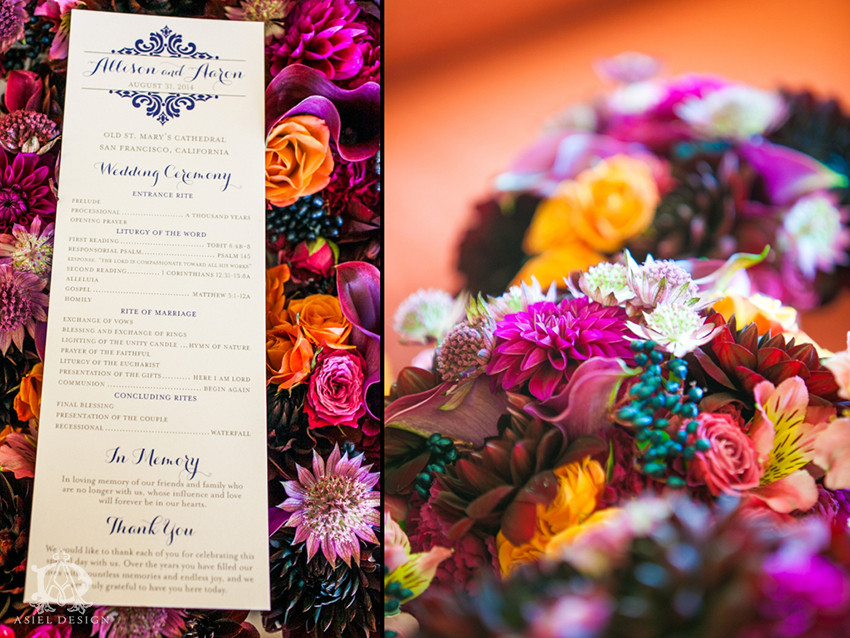 Allison and Aaron
AUGUST 31, 2014
OLD ST. MARY'S CATHEDRAL
SAN FRANCISCO, CALIFORNIA
Wedding Ceremony
ENTRANCE RITE
PRELUDE
PROCESSIONAL A THOUSAND YEARS
OPENING PRAYER
LITURGY OF THE WORD
FIRST READING TOBIT 8:4B-8
RESPONSORIAL PSALM PSALM 145
RESPONSE: "THE LORD IS COMPASSIONATE TOWARD ALL HIS WORKS"
SECOND READING 1 CORINTHIANS 12:31-13:8A
ALLELUIA
GOSPEL MATTHEW 5:1-12A
HOMILY
RITE OF MARRIAGE
EXCHANGE OF VOWS
BLESSING AND EXCHANGE OF RINGS
LIGHTING OF THE UNITY CANDLE HYMN OF NATURE
PRAYER OF THE FAITHFUL
LITURGY OF THE EUCHARIST
PRESENTATION OF THE GIFTS HERE I AM LORD
COMMUNION BEGIN AGAIN
CONCLUDING RITES
FINAL BLESSING
PRESENTATION OF THE COUPLE
RECESSIONAL WATERFALL
In Memory
In loving memory of our friends and family who
are no longer with us, whose influence and love
will forever be in our hearts.
Thank You
We would like to thank each of you for celebrating this
special day with us. Over the years you have filled our
countless memories and endless joy, and we
truly grateful to have you here today.
ASIEL DESIGN